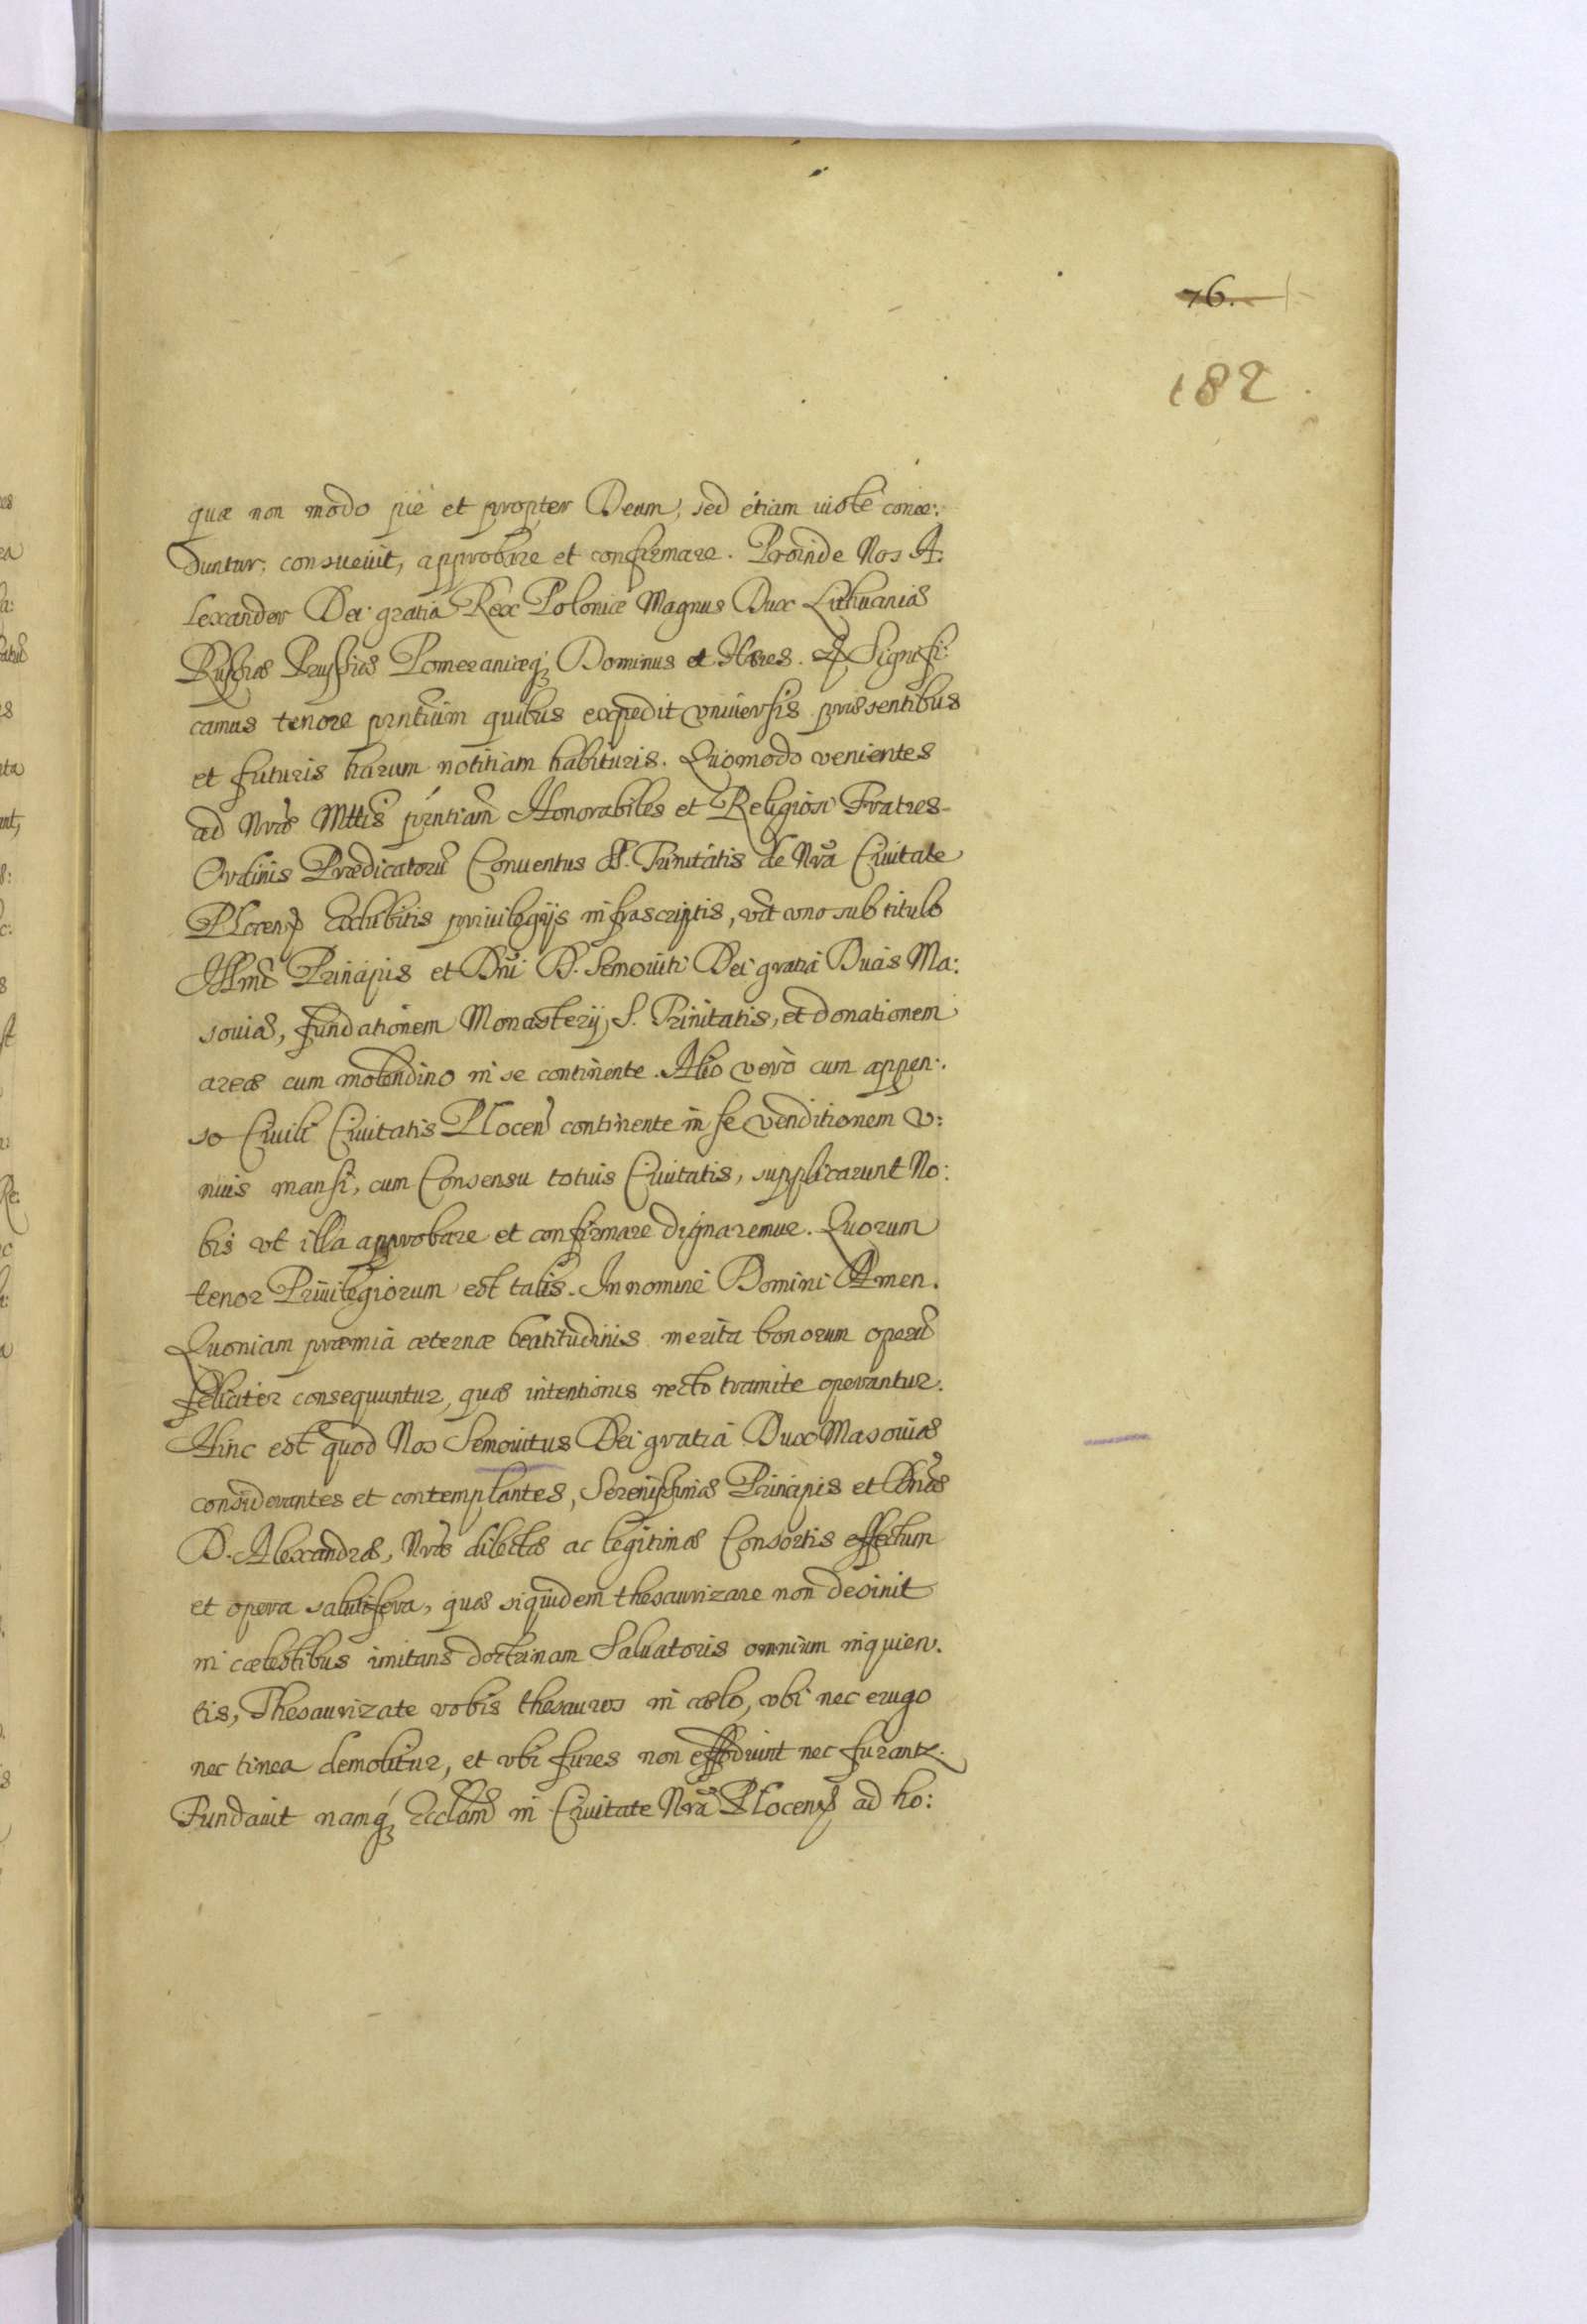 76.
182
quæ non modo piè et propter Deum, sed etiam iustè conce:
duntur, consueuit, approbare et confirmare. Proinde Nos A:
lexander Dei gratia Rex Poloniæ Magnus Dux Lithuaniæ
Russiæ Prussiæ Pomeraniæq3 Dominus et Hæres. Signifi:
camus tenore prntium quibus expedit vniuersis præsentibus
et futuris harum notitiam habituris. Quomodo venientes
ad Nræ Mttis prntiam Honorabiles et Religiosi Fratres
Ordinis Prædicatorũ Conuentus S. Trinitatis de Nrã Ciuitate
Plocens Exhibitis priuilegijs infrascriptis, vdt vno sub titulo
Illmi Principis et Dni D. Semouiti Dei gratia Ducis Ma:
souiæ, fundationem Monasterij S. Trinitatis, et donationem
areæ cum molendino in se continente. Alio verò cum appen:
so Ciuili Ciuitatis Plocen continente in se venditionem v:
nius mansi, cum Consensu totius Ciuitatis, supplicarunt No:
bis vt illa approbare et confirmare dignaremur. Quorum
tenor Priuilegiorum est talis. In nomine Domini Amen.
Quoniam præmia æternæ beatitudinis merita bonorum operũ
feliciter consequuntur, quæ intentionis recto tramite operantur.
Hinc est quod Nos Semouitus Dei gratia Dux Masouiæ
considerantes et contemplantes, Serenissimæ Principis et Dnæ
D. Alexandræ, Nræ dilectæ ac legitimæ Consortis effectum
et opera salutifera, quæ siquidem thesaurizare non desinit
in cælestibus imitans doctrinam Saluatoris omnium inquien.
tis, Thesaurizate vobis thesauros in cælo, vbi nec erugo
nec tinea demolitur, et vbi fures non effodiunt nec furantr.
Fundauit namq3 Ecclam in Ciuitate Nrã Plocens ad ho: